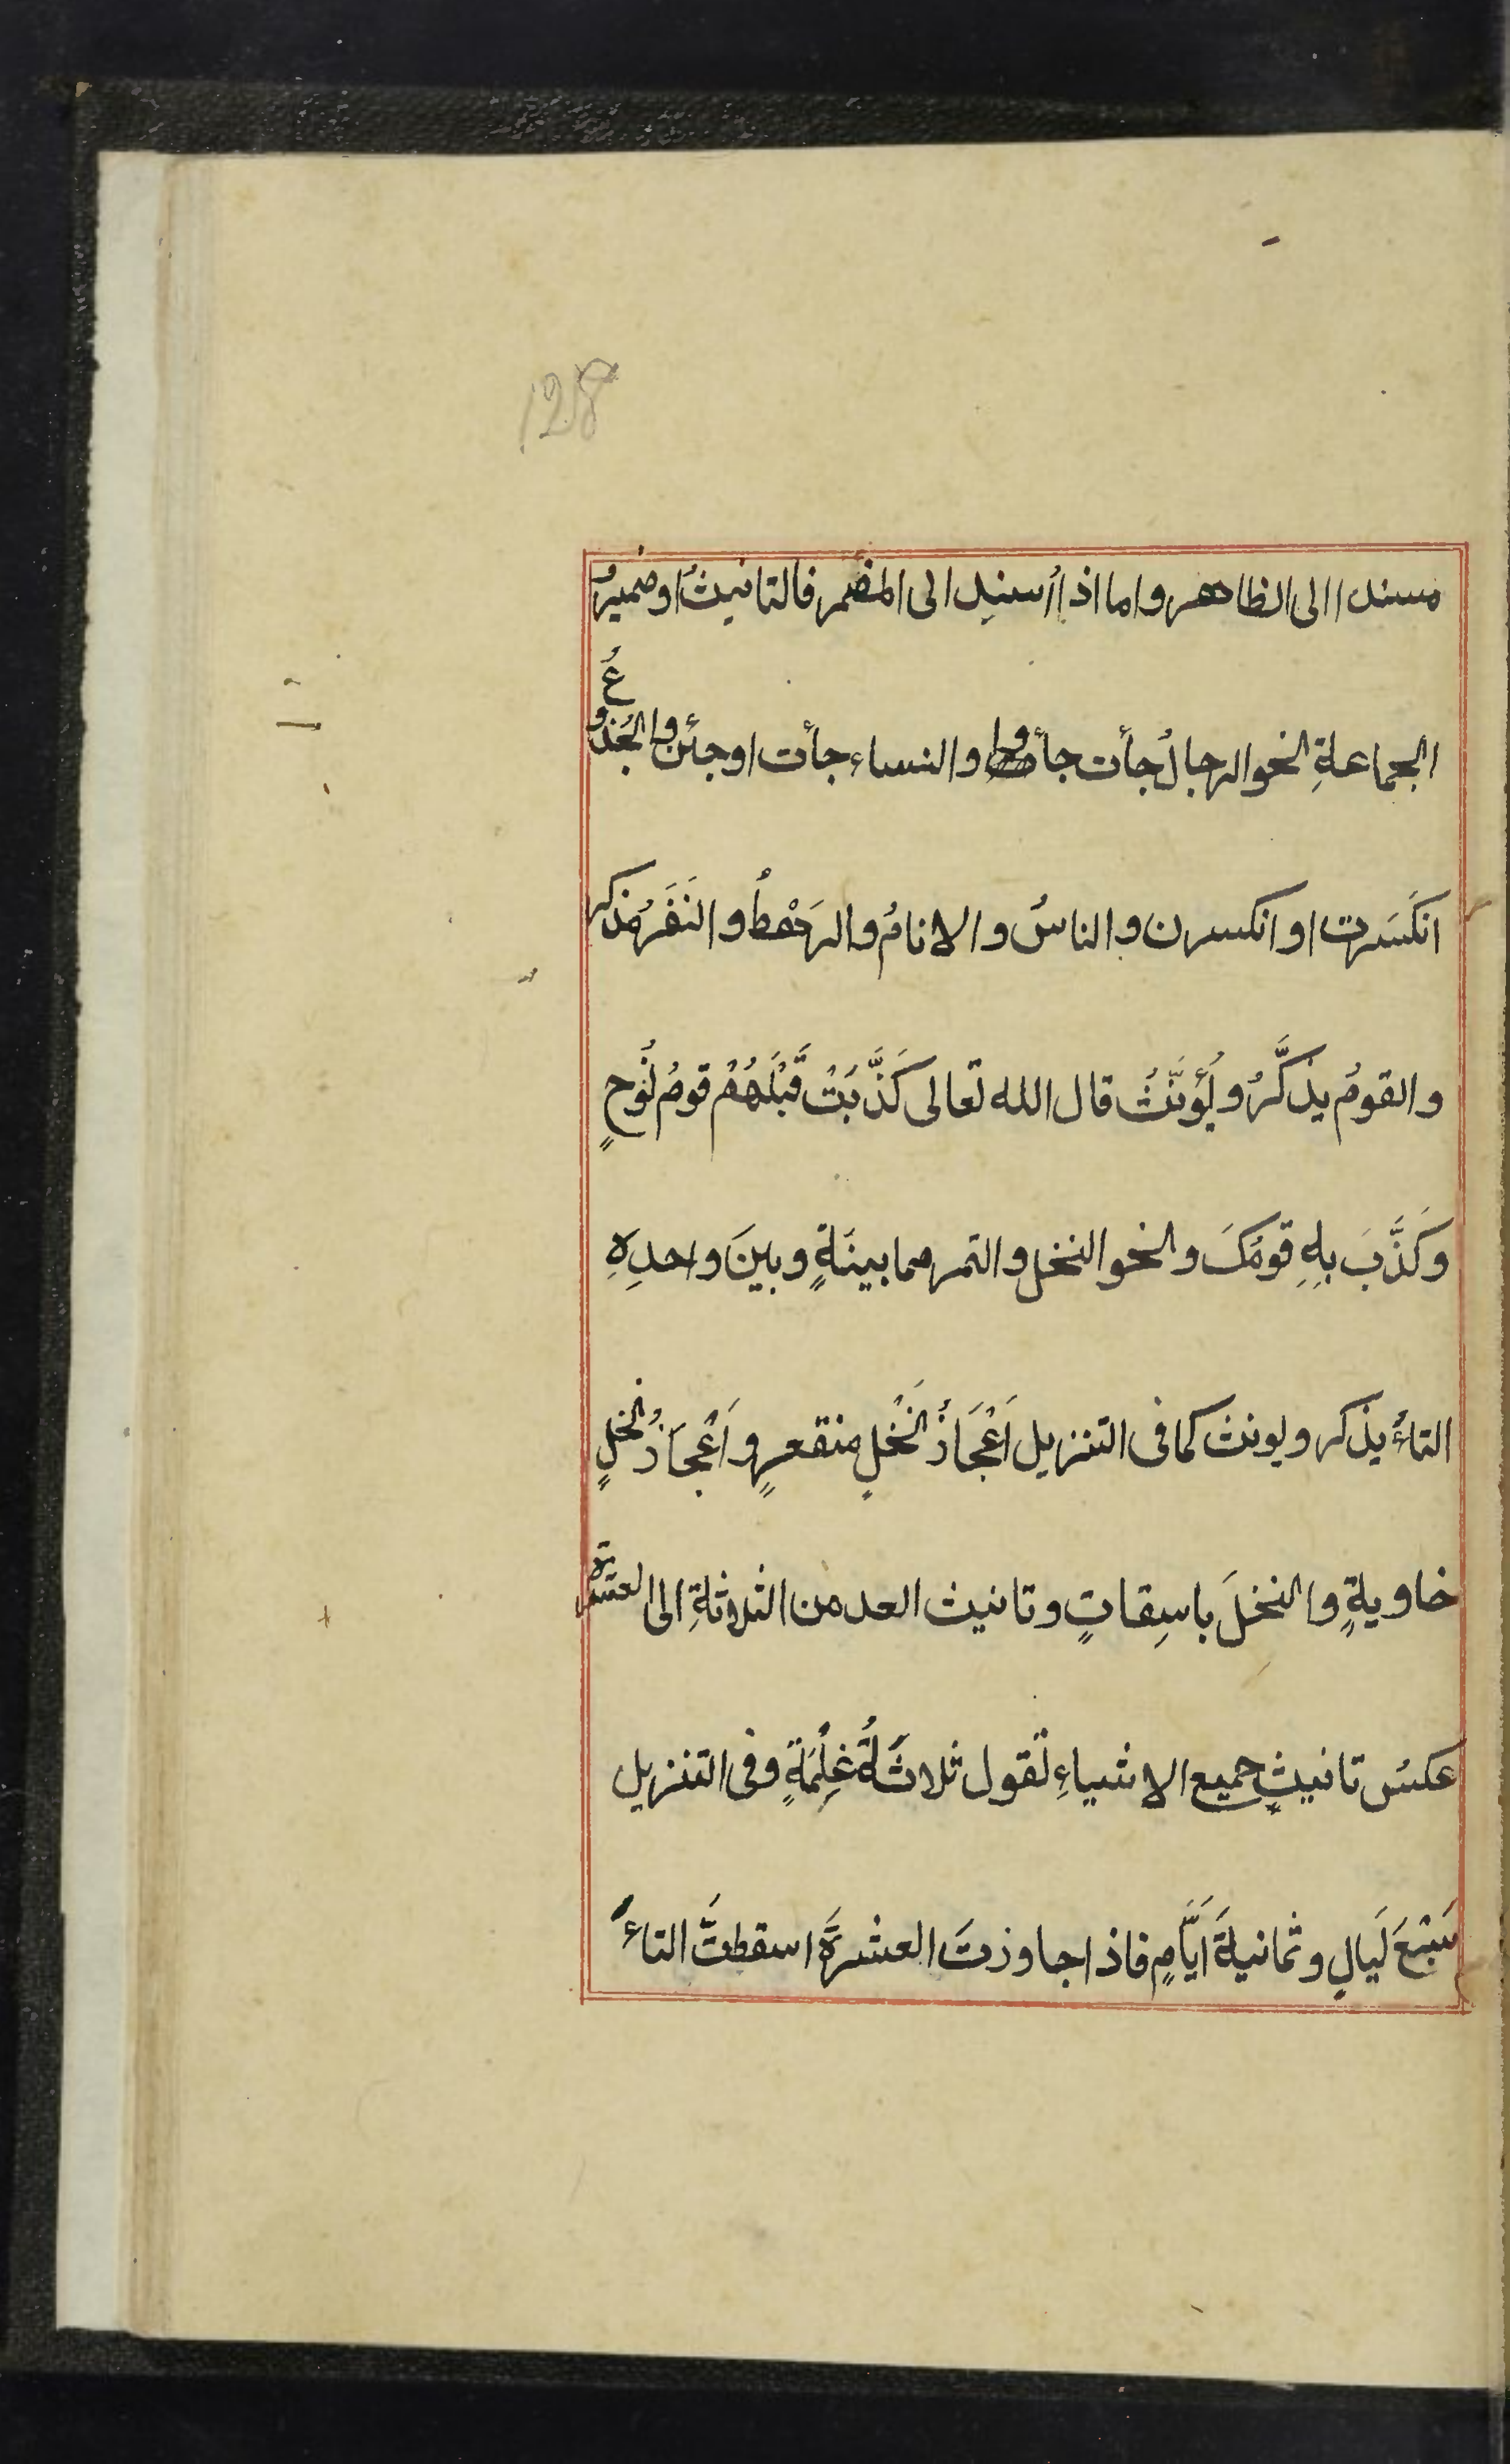 128
مسندا الى الظاهر واما اذا اُسنِد الى المضمر فالتانيثُ او ضميرُ
الجماعةِ نحو الرجالُ جأت جأوا والنساء جأت او جئن والجُذوعُ
انكَسَرت او انكسرن والناسُ والانامُ والرَهْطُ والنَفَرُ مذكر
والقومُ يذكَّرُ ويُؤنَّثُ قال الله تعالى كَذَّبَتْ قَبْلَهُمْ قومُ نُوحٍ
وَكَذَّبَ بِهِ قومُكَ ونحو النخل والتمر مما بينَهٍ وبينَ واحدِهِ
التاءُ يذكر ويونث كما فى التنزيل اَعْجَازُ نَخْلٍ منقعرٍ واَعْجَازُ نخلٍ
خاويةٍ والنخلَ باسِقاتٍ وتانيث العد من الثلاثةِ الى العشرة
عكسُ تانيثِ جميع الاشياءِ تقول ثلاثَةُ غِلْمَةٍ وفى التنزيل
سَبْعَ لَيَالٍ وثمانيةَ اَيَّامٍ فاذا جاوزتَ العشرَةَ اسقطتَّ التاءَ